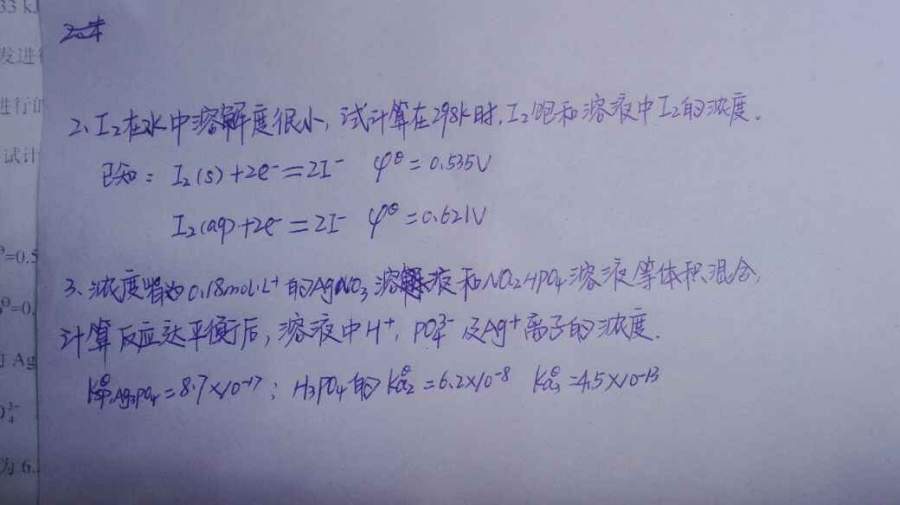 33 kJ
发进行
进行的
试计
=0.5
=0.
Ag
为 6.
2、I₂在水中溶解度很小, 试计算在298K时, I₂饱和溶液中I₂的浓度.
已知: I₂(s)+2e⁻=2I⁻ φ^θ=0.535V
I₂(aq)+2e⁻=2I⁻ φ^θ=0.621V
3、浓度皆为0.18mol·L⁻¹的AgNO₃溶液和Na₂HPO₄溶液等体积混合,
计算反应达平衡后, 溶液中H⁺, PO₄³⁻及Ag⁺离子的浓度.
K^θsp,Ag₃PO₄=8.7×10⁻¹⁷; H₃PO₄的K^θa₂=6.2×10⁻⁸ K^θa₃=4.5×10⁻¹³